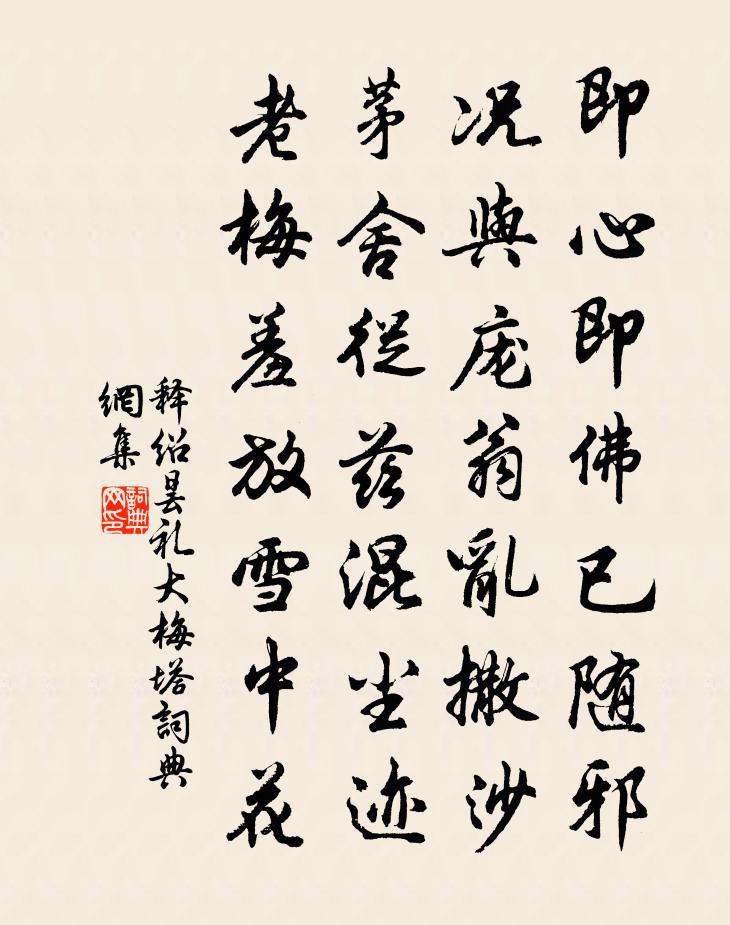 即心即佛已随邪
况與庞翁亂撒沙
茅舍從茲混尘迹
老梅羞放雪中花
释绍昙礼大梅塔詞典
網集
詞典
网印